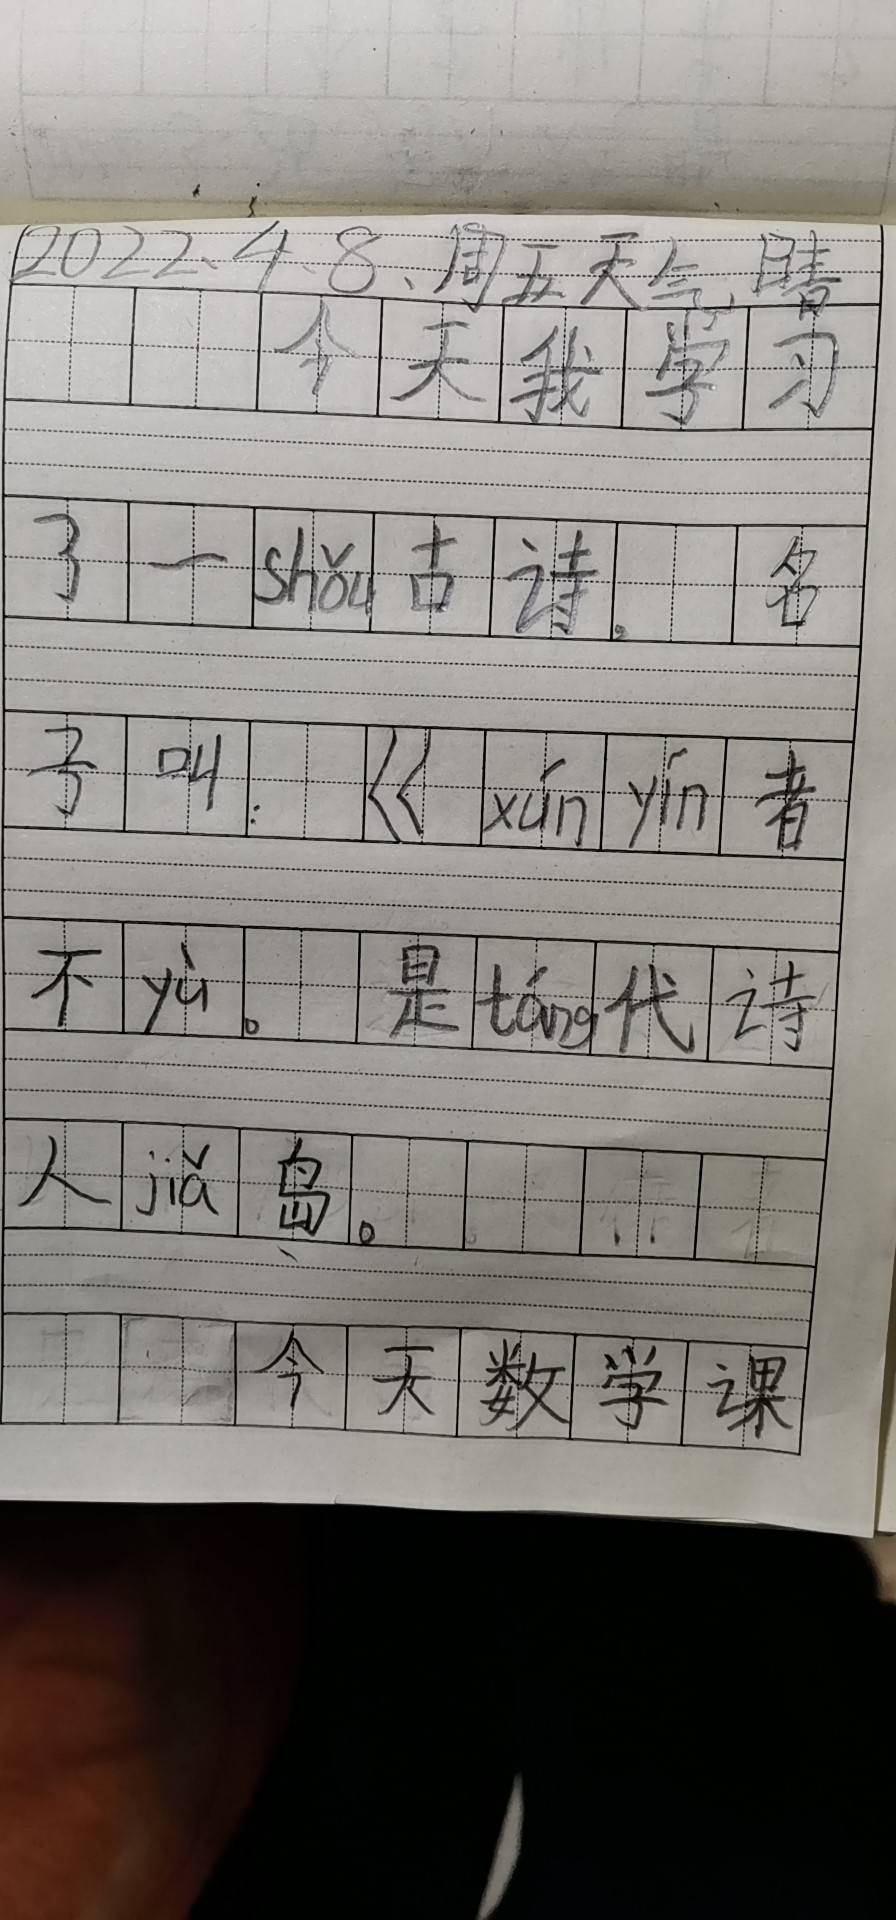 2022.4.8.周五天气.晴
今天我学习
了一shǒu古诗。名
子叫:《xún yín者
不yù。是táng代诗
人jiǎ岛。
今天数学课